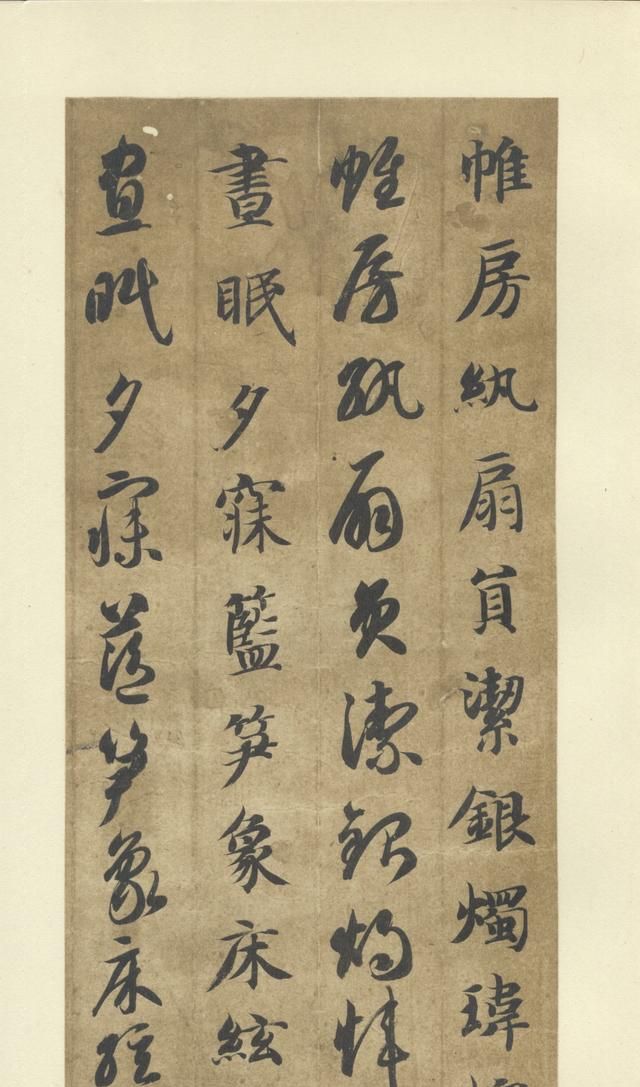 帷房紈扇員潔銀燭瑋
帷房紈扇員潔銀燭煒
晝眠夕寐籃笋象床絃
晝眠夕寐藍笋象床絃